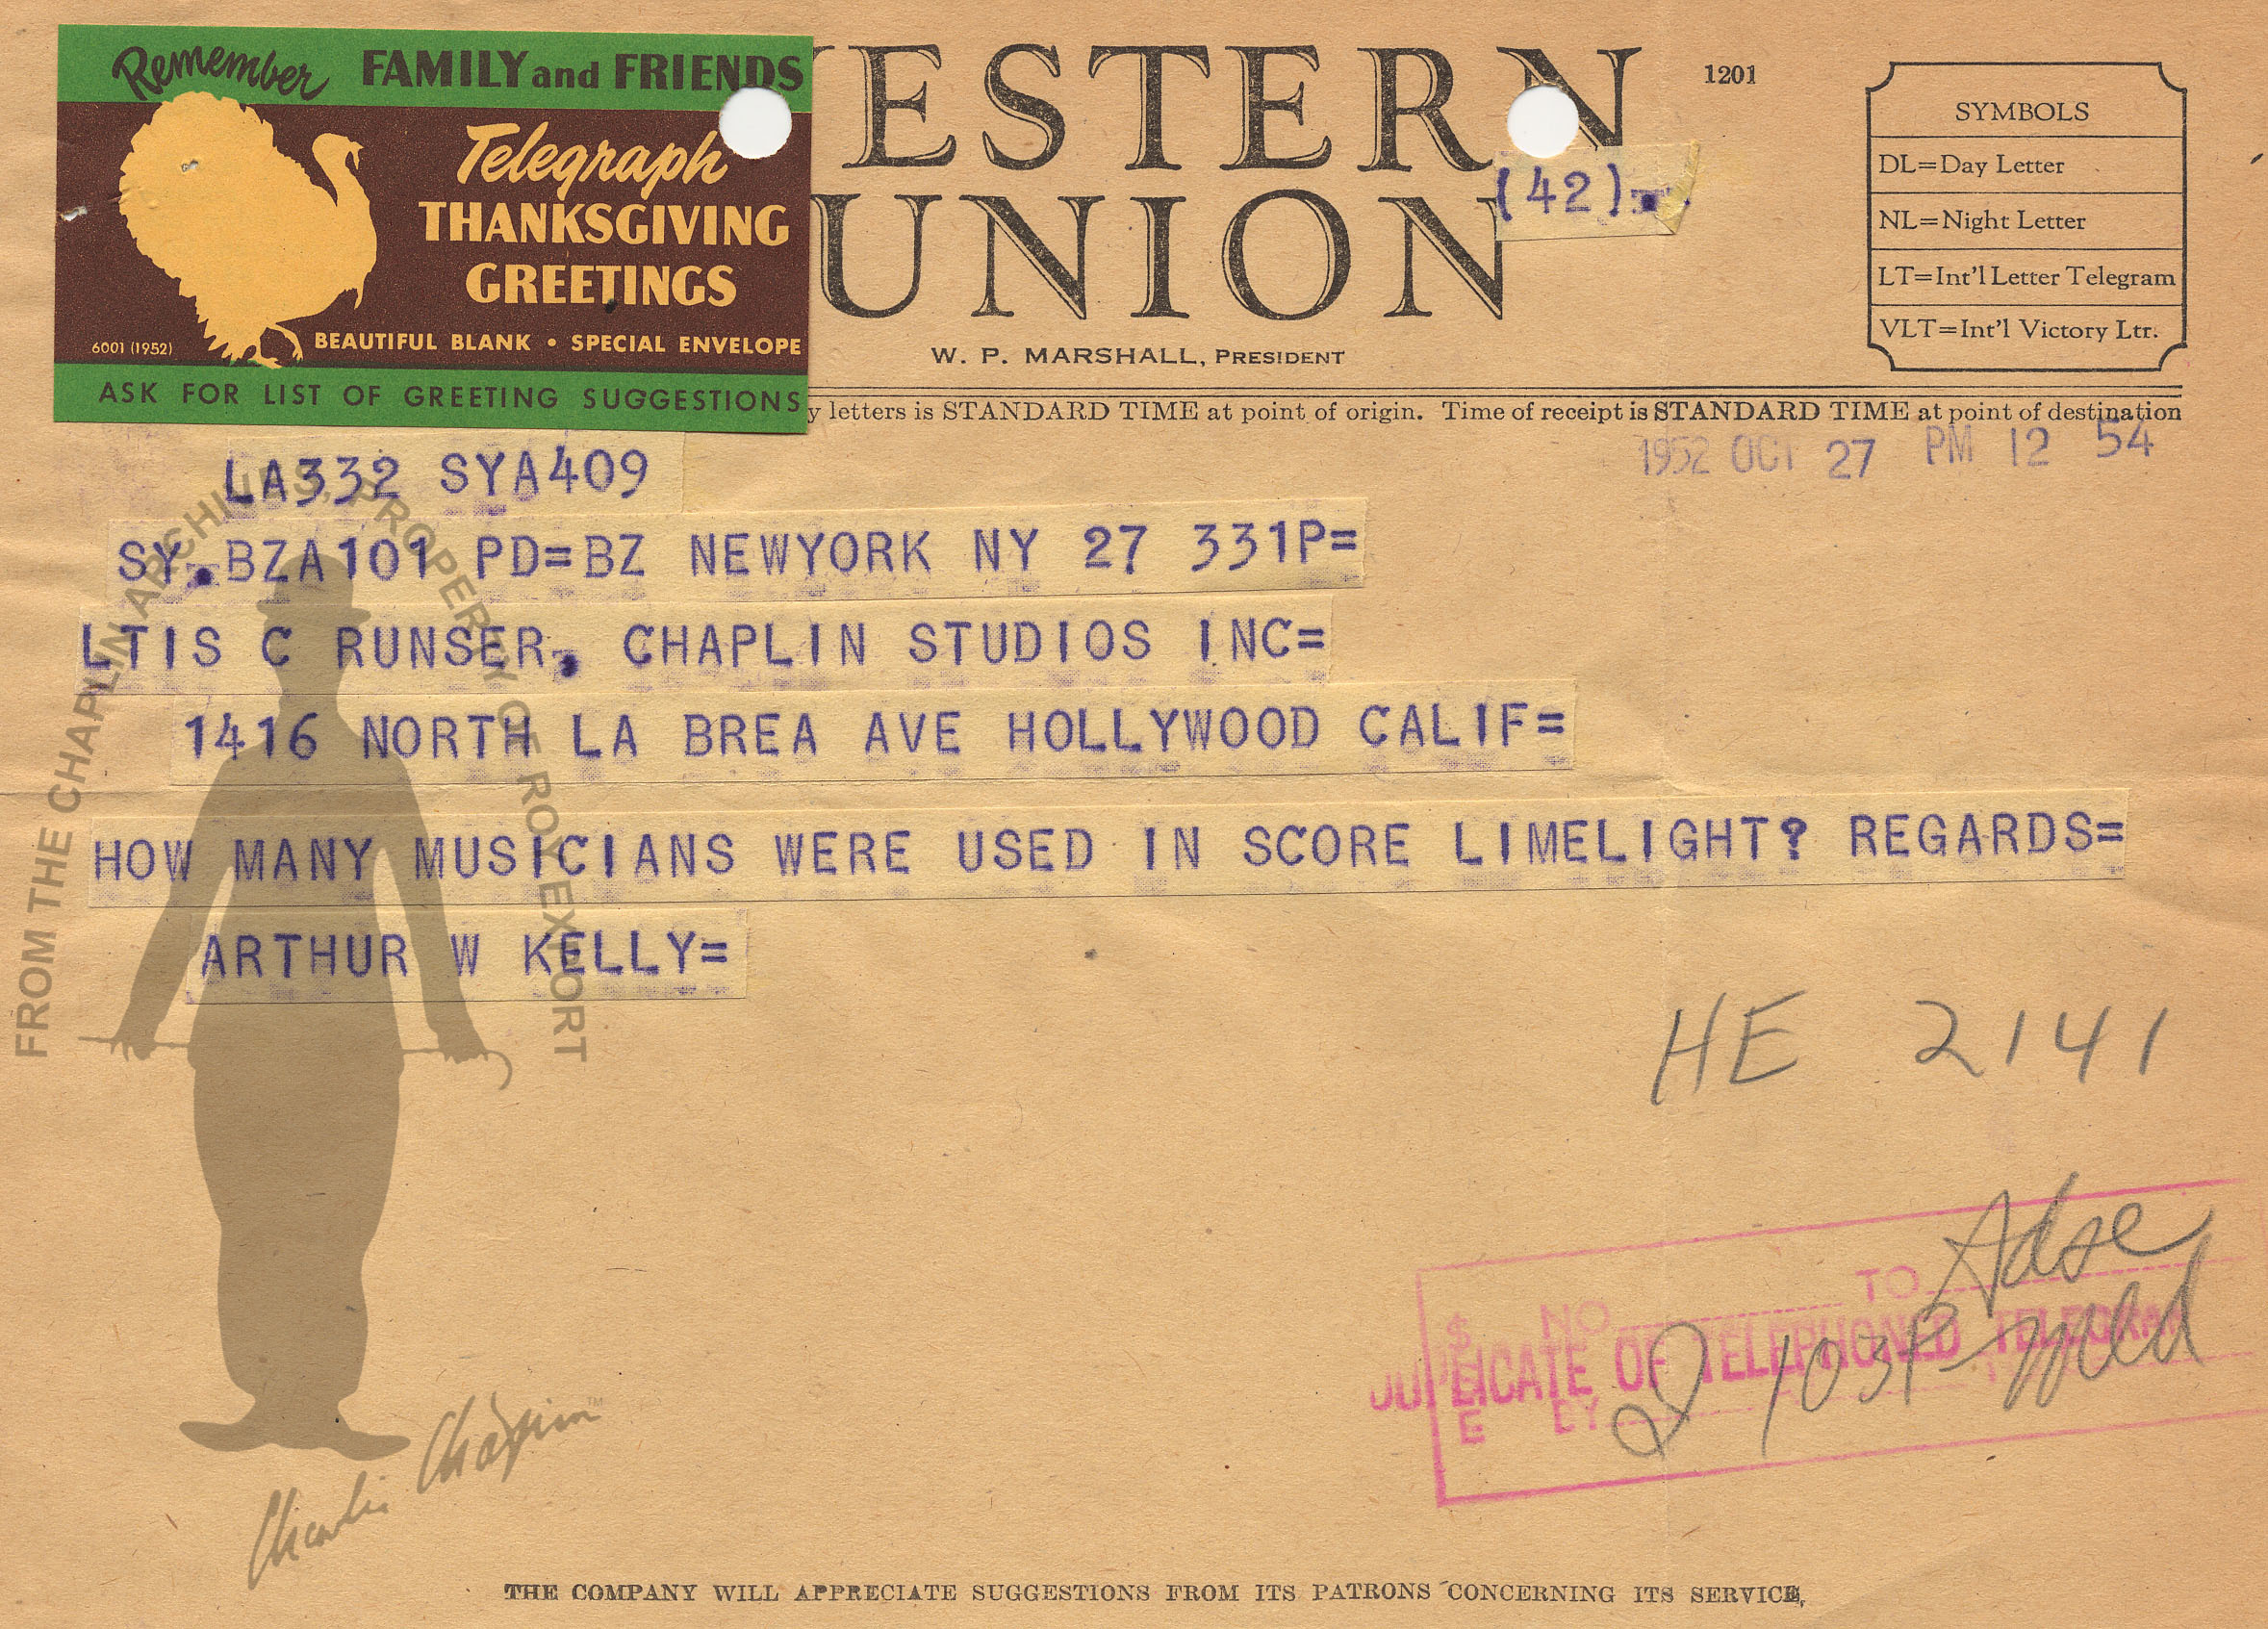 Remember FAMILY and FRIENDS
Telegraph
THANKSGIVING
GREETINGS
6001 (1952)
BEAUTIFUL BLANK • SPECIAL ENVELOPE
ASK FOR LIST OF GREETING SUGGESTIONS
ESTERN
UNION
1201
(42)
W. P. MARSHALL, PRESIDENT
SYMBOLS
DL=Day Letter
NL=Night Letter
LT=Int'l Letter Telegram
VLT=Int'l Victory Ltr.
y letters is STANDARD TIME at point of origin. Time of receipt is STANDARD TIME at point of destination
1952 OCT 27 PM 12 54
LA332 SYA409
SY.BZA101 PD=BZ NEWYORK NY 27 331P=
LTIS C RUNSER, CHAPLIN STUDIOS INC=
1416 NORTH LA BREA AVE HOLLYWOOD CALIF=
HOW MANY MUSICIANS WERE USED IN SCORE LIMELIGHT? REGARDS=
ARTHUR W KELLY=
FROM THE CHAPLIN ARCHIVES, PROPERTY OF ROY EXPORT
HE 2141
Adse
NO TO
DUPLICATE OF TELEPHONED TELEGRAM
103P
Charlie Chaplin
THE COMPANY WILL APPRECIATE SUGGESTIONS FROM ITS PATRONS CONCERNING ITS SERVICE